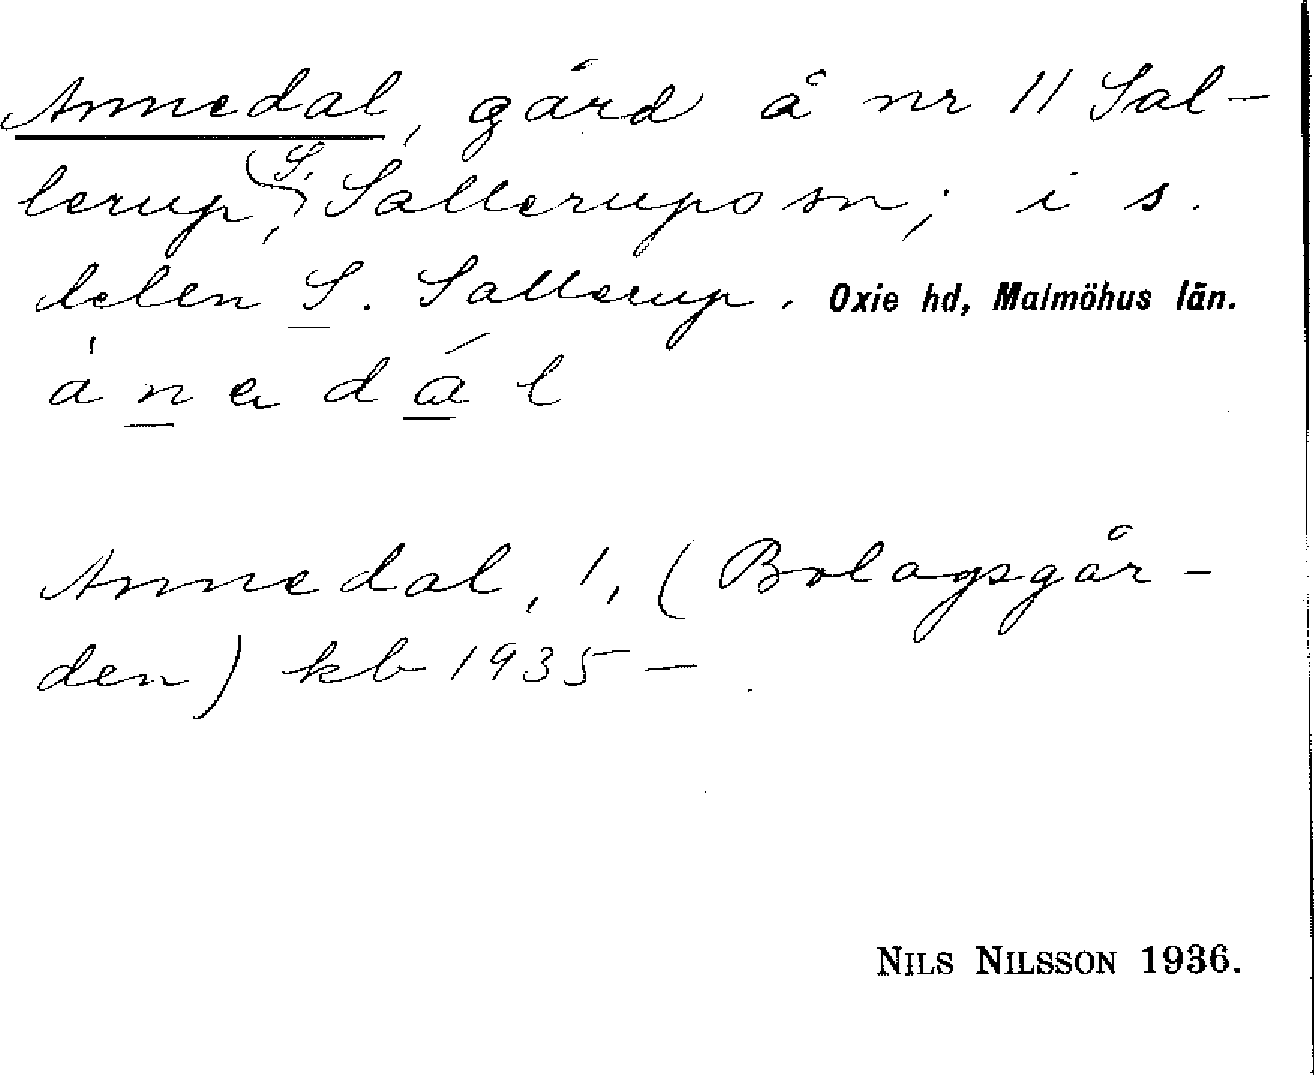 Annedal, gård å nr 11 Sal-
lerup, S. Sallerups sn; i s.
delen S. Sallerup. Oxie hd, Malmöhus län.
Annedal, 1, (Bolagsgår-
den) kb 1935 –
NILS NILSSON 1936.